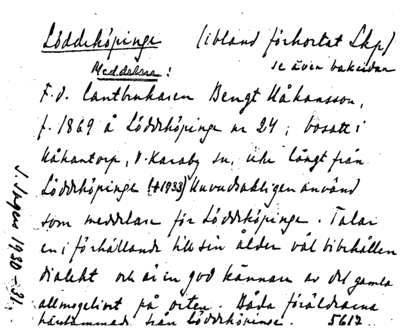 Löddeköpinge (ibland förkortat Lkp)
se även baksidan
Meddelare:
F.d. lantbrukaren Bengt Håkansson,
f. 1869 å Löddeköpinge nr 24; bosatt i
Håkantorp, V. Karaby sn, icke långt från
Löddeköpinge (+1933) Huvudsakligen använd
som meddelare för Löddeköpinge. Talar
en i förhållande till sin ålder väl bibehållen
dialekt och är en god kännare av det gamla
allmogelivet på orten. Båda föräldrarna
härstammade från Löddeköpinge. 5617
1930-31.